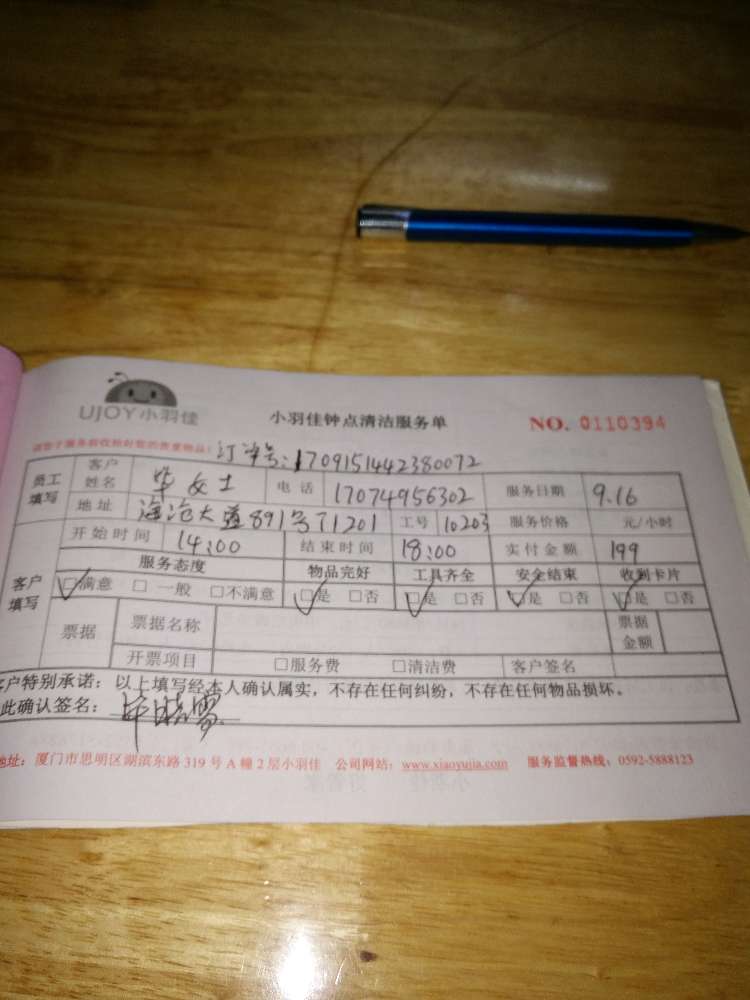 UJOY小羽佳
小羽佳钟点清洁服务单 NO. 0110394
订单号:1709151442380072
员工填写 客户姓名 毕女士 电话 17074956302 服务日期 9.16
地址 海沧大道891号T1201 工号 10203 服务价格 元/小时
开始时间 14:00 结束时间 18:00 实付金额 199
客户填写 服务态度 物品完好 工具齐全 安全结束 收到卡片
☑满意 □一般 □不满意 ☑是 □否 ☑是 □否 ☑是 □否 ☑是 □否
票据 票据名称 票据金额
开票项目 □服务费 □清洁费 客户签名
客户特别承诺：以上填写经本人确认属实，不存在任何纠纷，不存在任何物品损坏。
此确认签名：毕晓雪
地址：厦门市思明区湖滨东路319号A幢2层小羽佳 公司网站：www.xiaoyujia.com 服务监督热线：0592-5888123